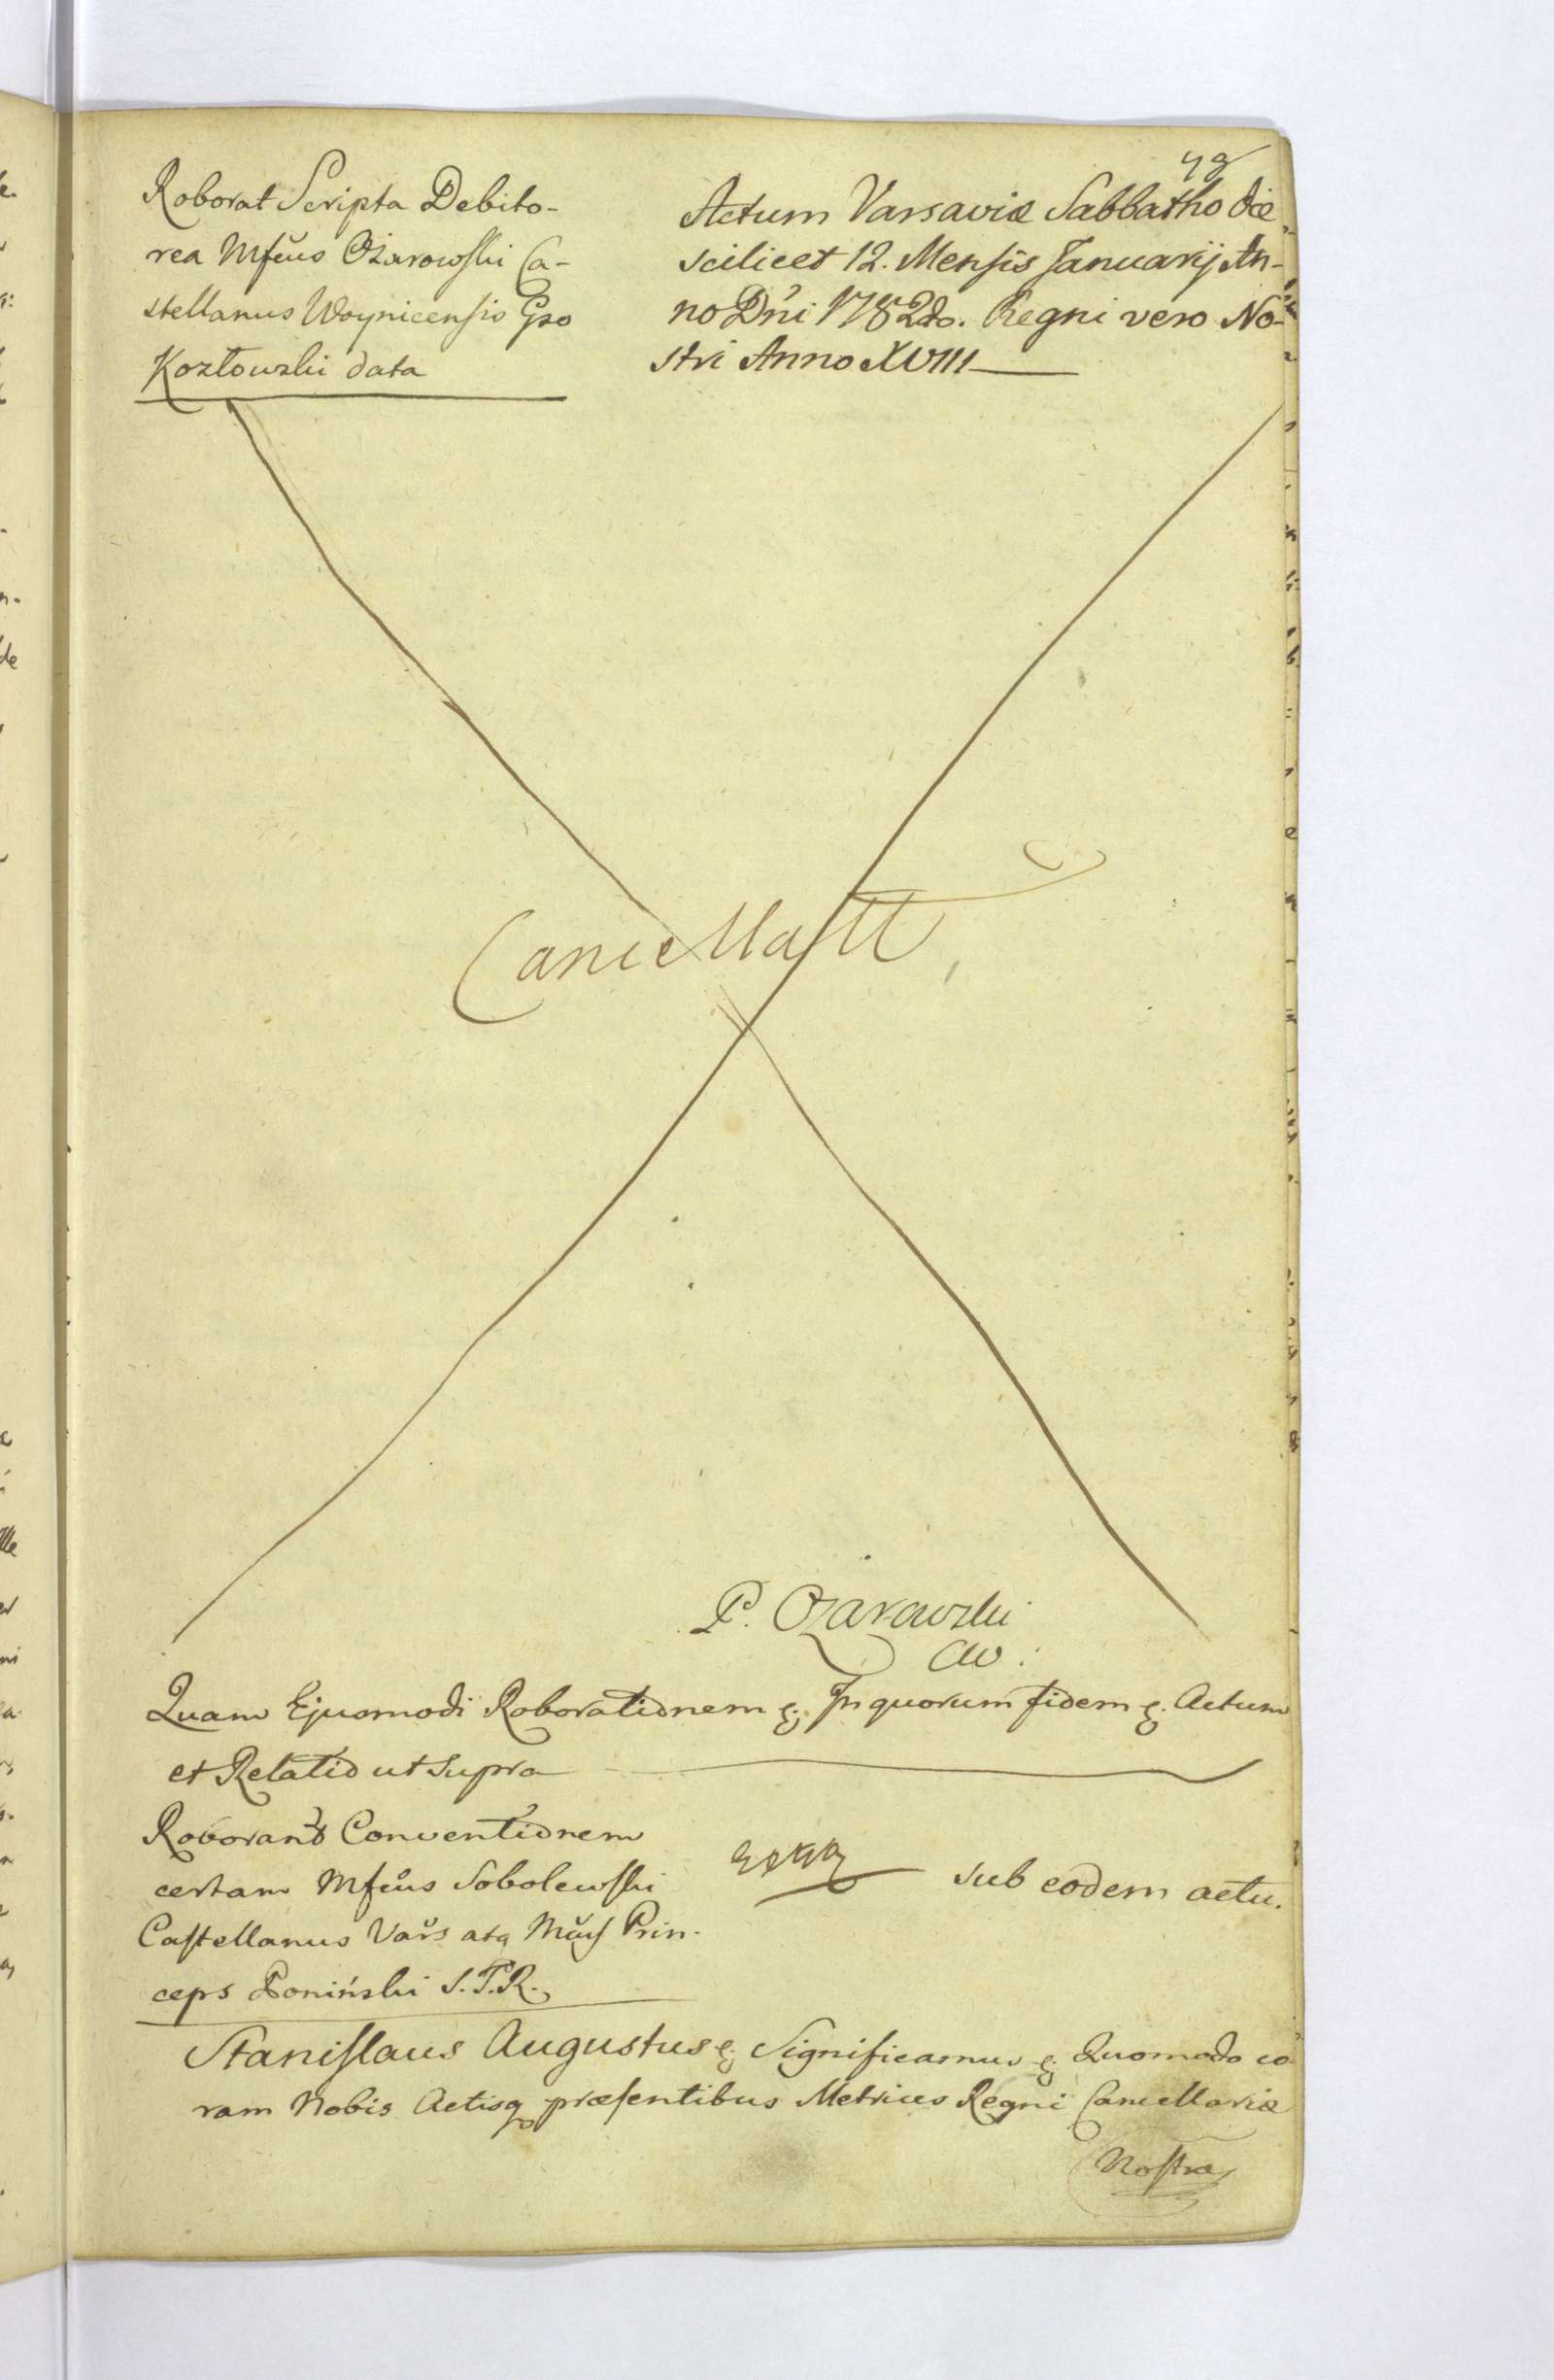 48
Roborat Scripta Debito-
rea Mfĉus Ożarowski Ca-
stellanus Woynicensis Gso
Kozłowski data
Actum Varsaviæ Sabbatho die
scilicet 12. Mensis Januarij An-
no Dñi 1782do. Regni vero No-
stri Anno XVIII
Cancellatt
P. Ozarowski
CW:
Quam Ejusmodi Roborationem &. In quorum fidem &. Actum
et Relatio ut supra
Roborant Conventionem
certam Mfĉus Sobolewski
Castellanus Vars atq Prin-
ceps Poniński S.T.R.
sub eodem actu.
Stanislaus Augustus &. Significamus &. Quomodo co-
ram Nobis Actisq præsentibus Metrices Regni Cancellariæ
Nostræ